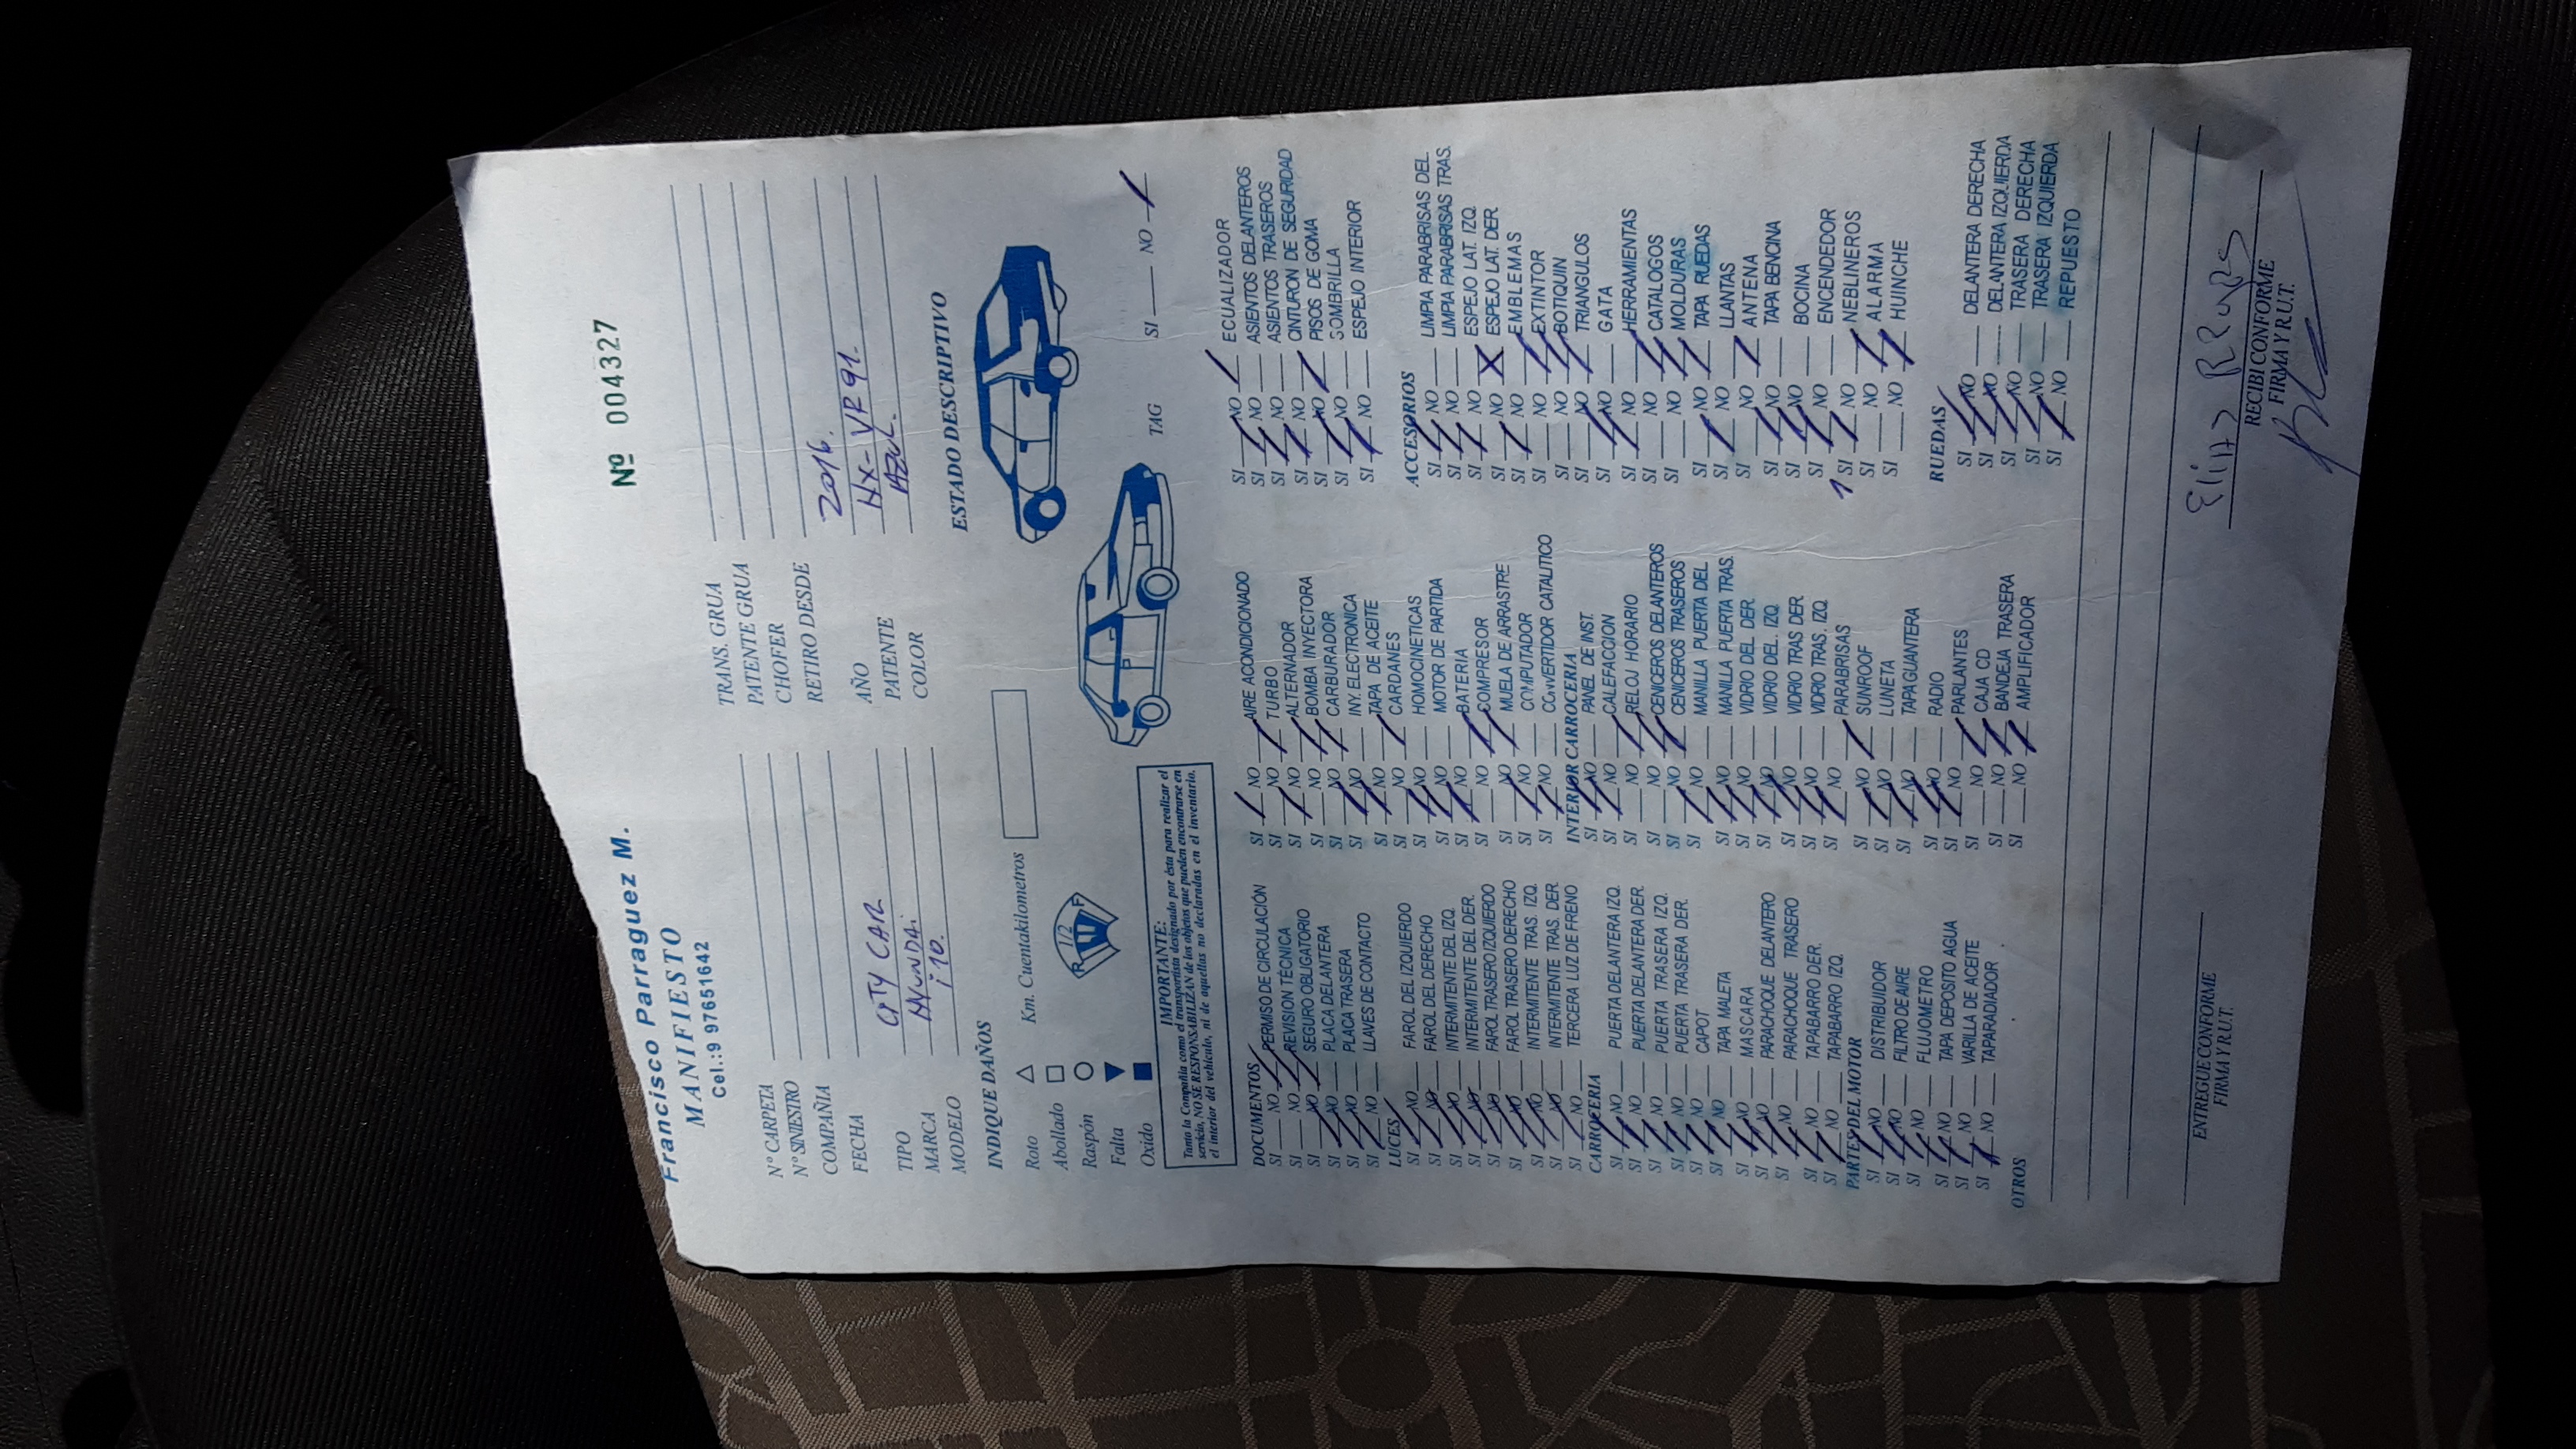 Francisco Parraguez M.
MANIFIESTO
Cel.:9 97651642
Nº 004327
Nº CARPETA
Nº SINIESTRO
COMPAÑIA
FECHA
TIPO CITY CAR
MARCA HYUNDAI
MODELO i10.
TRANS. GRUA
PATENTE GRUA
CHOFER
RETIRO DESDE
AÑO 2016.
PATENTE HX-VR91.
COLOR AZUL.
INDIQUE DAÑOS
ESTADO DESCRIPTIVO
Roto
Abollado
Raspón
Falta
Oxido
Km. Cuentakilometros
R 1/2 F
TAG SI NO
IMPORTANTE:
Tanto la Compañia como el transportista designado por ésta para realizar el
servicio, NO SE RESPONSABILIZAN de los objetos que pueden encontrarse en
el interior del vehículo, ni de aquellas no declaradas en el inventario.
DOCUMENTOS
SI NO PERMISO DE CIRCULACIÓN
SI NO REVISION TÉCNICA
SI NO SEGURO OBLIGATORIO
SI NO PLACA DELANTERA
SI NO PLACA TRASERA
SI NO LLAVES DE CONTACTO
LUCES
SI NO FAROL DEL IZQUIERDO
SI NO FAROL DEL DERECHO
SI NO INTERMITENTE DEL IZQ.
SI NO INTERMITENTE DEL DER.
SI NO FAROL TRASERO IZQUIERDO
SI NO FAROL TRASERO DERECHO
SI NO INTERMITENTE TRAS. IZQ.
SI NO INTERMITENTE TRAS. DER.
SI NO TERCERA LUZ DE FRENO
CARROCERIA
SI NO PUERTA DELANTERA IZQ.
SI NO PUERTA DELANTERA DER.
SI NO PUERTA TRASERA IZQ.
SI NO PUERTA TRASERA DER.
SI NO CAPOT
SI NO TAPA MALETA
SI NO MASCARA
SI NO PARACHOQUE DELANTERO
SI NO PARACHOQUE TRASERO
SI NO TAPABARRO DER.
SI NO TAPABARRO IZQ.
PARTES DEL MOTOR
SI NO DISTRIBUIDOR
SI NO FILTRO DE AIRE
SI NO FLUJOMETRO
SI NO TAPA DEPOSITO AGUA
SI NO VARILLA DE ACEITE
SI NO TAPARADIADOR
OTROS
SI NO AIRE ACONDICIONADO
SI NO TURBO
SI NO ALTERNADOR
SI NO BOMBA INYECTORA
SI NO CARBURADOR
SI NO INY. ELECTRONICA
SI NO TAPA DE ACEITE
SI NO CARDANES
SI NO HOMOCINETICAS
SI NO MOTOR DE PARTIDA
SI NO BATERIA
SI NO COMPRESOR
SI NO MUELA DE ARRASTRE
SI NO COMPUTADOR
SI NO CONVERTIDOR CATALITICO
INTERIOR CARROCERIA
SI NO PANEL DE INST.
SI NO CALEFACCION
SI NO RELOJ HORARIO
SI NO CENICEROS DELANTEROS
SI NO CENICEROS TRASEROS
SI NO MANILLA PUERTA DEL
SI NO MANILLA PUERTA TRAS.
SI NO VIDRIO DEL DER.
SI NO VIDRIO DEL. IZQ.
SI NO VIDRIO TRAS DER.
SI NO VIDRIO TRAS. IZQ.
SI NO PARABRISAS
SI NO SUNROOF
SI NO LUNETA
SI NO TAPA GUANTERA
SI NO RADIO
SI NO PARLANTES
SI NO CAJA CD
SI NO BANDEJA TRASERA
SI NO AMPLIFICADOR
SI NO ECUALIZADOR
SI NO ASIENTOS DELANTEROS
SI NO ASIENTOS TRASEROS
SI NO CINTURON DE SEGURIDAD
SI NO PISOS DE GOMA
SI NO SOMBRILLA
SI NO ESPEJO INTERIOR
ACCESORIOS
SI NO LIMPIA PARABRISAS DEL.
SI NO LIMPIA PARABRISAS TRAS.
SI NO ESPEJO LAT. IZQ.
SI NO ESPEJO LAT. DER.
SI NO EMBLEMAS
SI NO EXTINTOR
SI NO BOTIQUIN
SI NO TRIANGULOS
SI NO GATA
SI NO HERRAMIENTAS
SI NO CATALOGOS
SI NO MOLDURAS
SI NO TAPA RUEDAS
SI NO LLANTAS
SI NO ANTENA
SI NO TAPA BENCINA
SI NO BOCINA
SI NO ENCENDEDOR
SI NO NEBLINEROS
SI NO ALARMA
SI NO HUINCHE
RUEDAS
SI NO DELANTERA DERECHA
SI NO DELANTERA IZQUIERDA
SI NO TRASERA DERECHA
SI NO TRASERA IZQUIERDA
SI NO REPUESTO
ENTREGUE CONFORME
FIRMA Y R.U.T.
RECIBI CONFORME
FIRMA Y R.U.T.